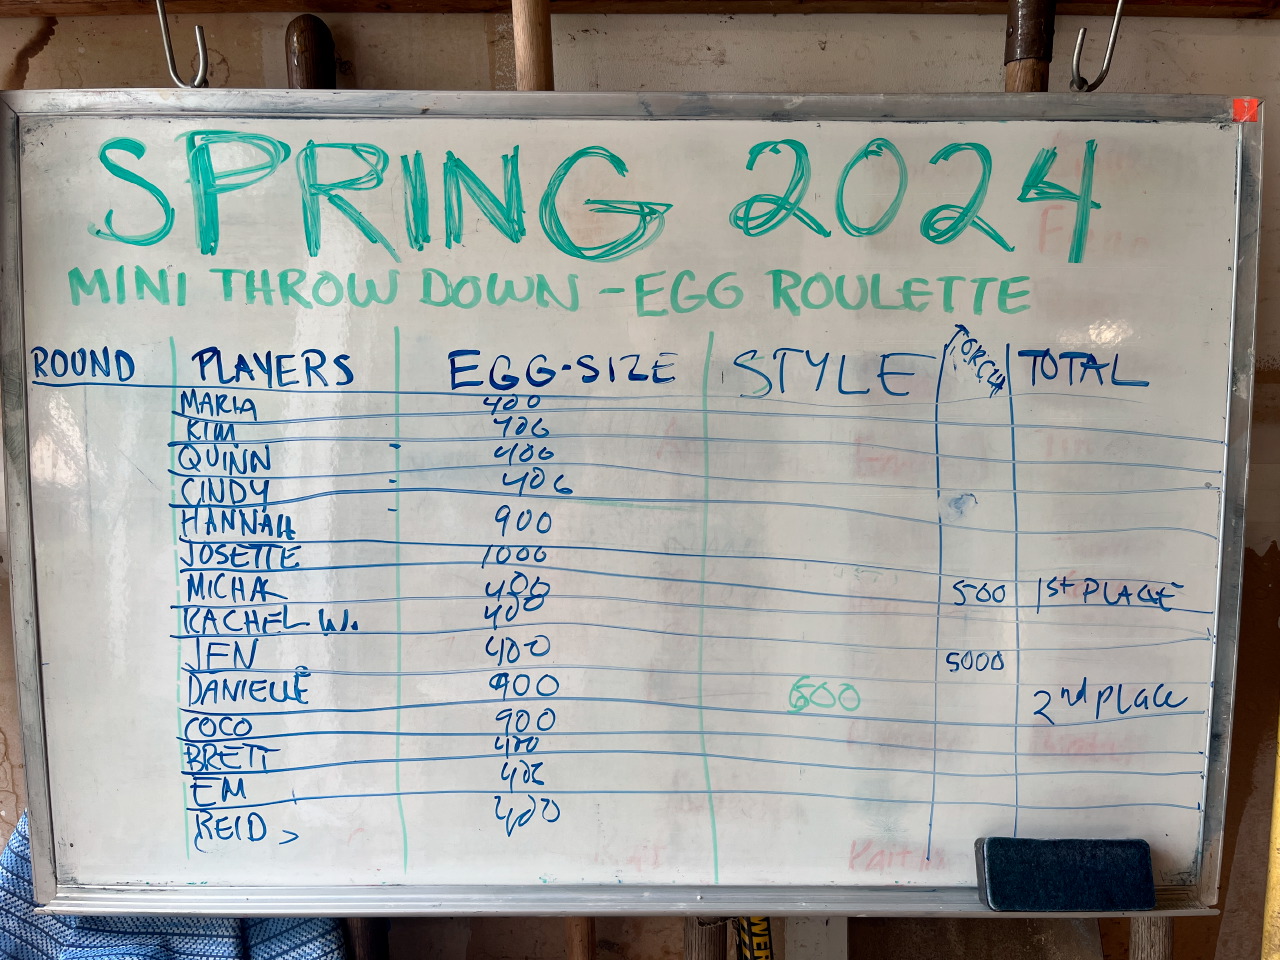 SPRING 2024
MINI THROW DOWN - EGG ROULETTE
ROUND PLAYERS EGG-SIZE STYLE TORCH TOTAL
MARIA 400
KIM 400
QUINN 400
CINDY 400
HANNAH 900
JOSETTE 1000
MICHA 400 500 1st PLACE
RACHEL W. 400
JEN 400 5000
DANIELLE 900 600 2nd place
COCO 900
BRETT 400
EM 400
REID 400